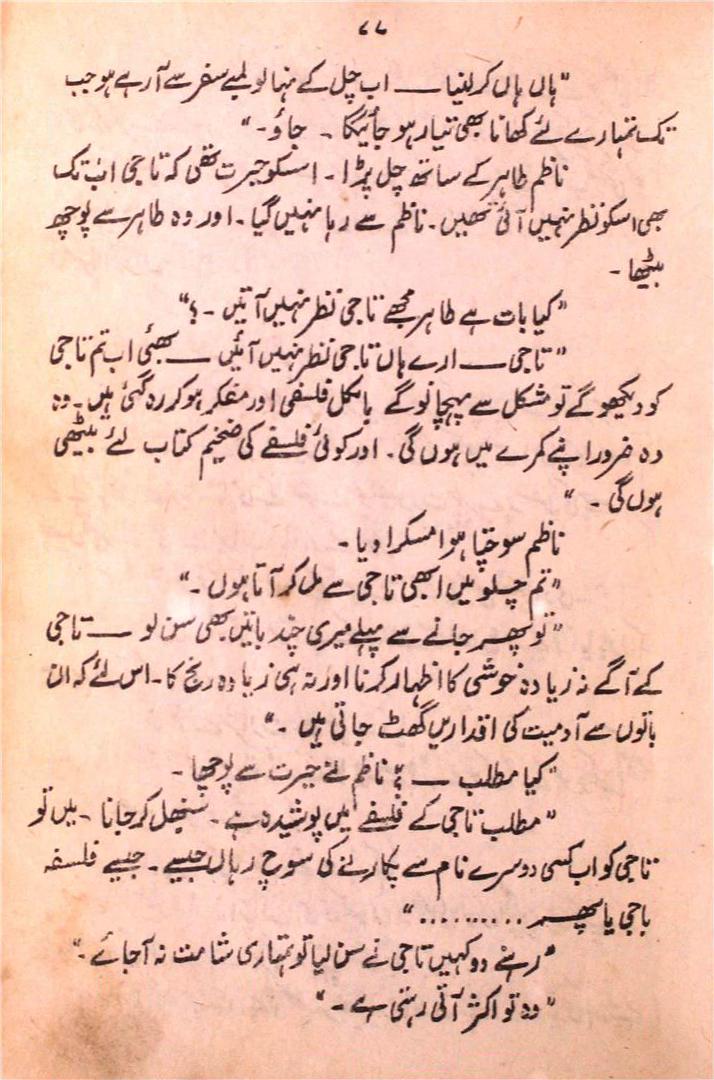 ۷۷
"ہاں ہاں کر لینا — اب چل کے نہا لو لمبے سفر سے آ رہے ہو جب
تک تمہارے لئے کھانا بھی تیار ہو جائیگا ۔ جاؤ ۔"
ناظم طاہر کے ساتھ چل پڑا ۔ اسکو حیرت تھی کہ تاجی اب تک
بھی اسکو نظر نہیں آئی تھیں ۔ ناظم سے رہا نہیں گیا ۔ اور وہ طاہر سے پوچھ
بیٹھا ۔
"کیا بات ہے طاہر مجھے تاجی نظر نہیں آتیں ۔؟"
"تاجی — ارے ہاں تاجی نظر نہیں آئیں — بھئی اب تم تاجی
کو دیکھو گے تو مشکل سے پہچانو گے بالکل فلسفی اور مفکر ہو کر رہ گئی ہیں ۔ وہ
وہ ضرور اپنے کمرے میں ہوں گی ۔ اور کوئی فلسفے کی ضخیم کتاب لئے بیٹھی
ہوں گی ۔ "
ناظم سوچتا ہوا مسکرا دیا ۔
"تم چلو میں ابھی تاجی سے مل کر آتا ہوں ۔"
"تو پھر جانے سے پہلے میری چند باتیں بھی سن لو — تاجی
کے آگے نہ زیادہ خوشی کا اظہار کرنا اور نہ ہی زیادہ رنج کا ۔ اس لئے کہ ان
باتوں سے آدمیت کی اقداریں گھٹ جاتی ہیں ۔"
"کیا مطلب — ؟ ناظم نے حیرت سے پوچھا ۔
"مطلب تاجی کے فلسفے میں پوشیدہ ہے ۔ سنبھل کر جانا ۔ میں تو
تاجی کو اب کسی دوسرے نام سے پکارنے کی سوچ رہا ہوں جیسے ۔ جیسے فلسفہ
باجی یا پھر .........."
"رہنے دو کہیں تاجی نے سن لیا تو تمہاری شامت نہ آ جائے ۔"
"وہ تو اکثر آتی رہتی ہے ۔ "